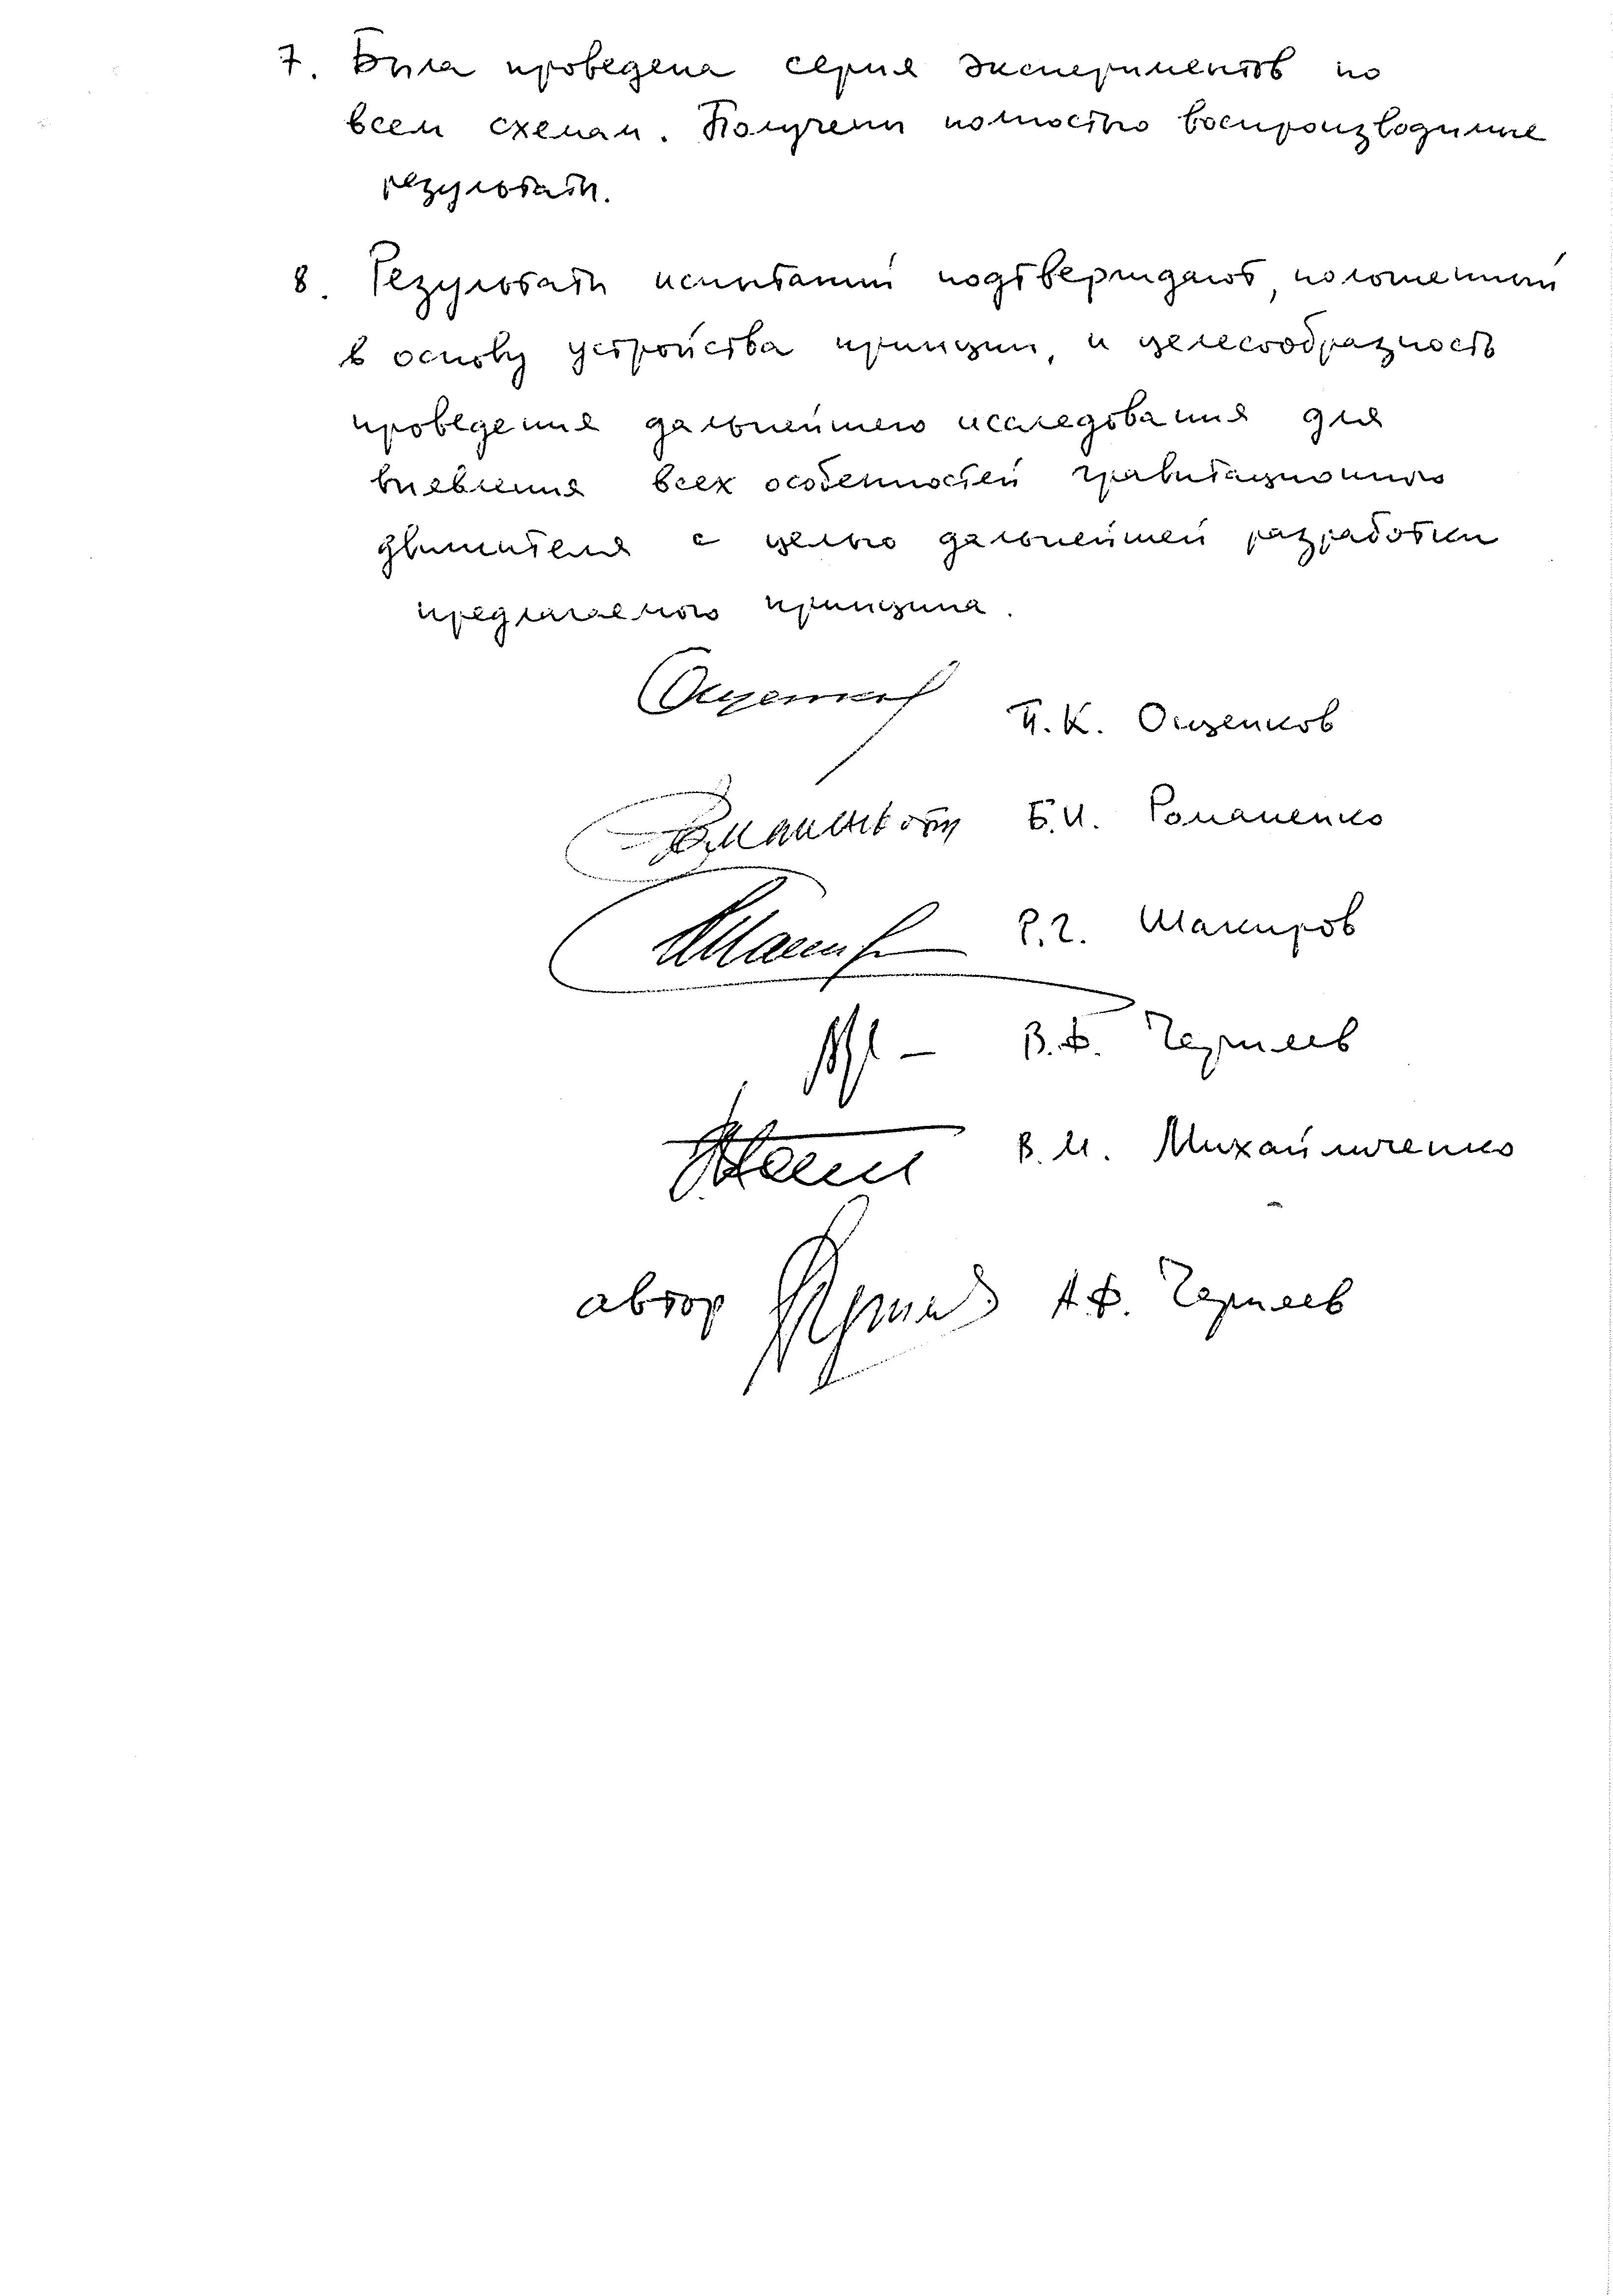 7. Была проведена серия экспериментов по
всем схемам. Получены полностью воспроизводимые
результаты.
8. Результаты испытаний подтверждают, положенный
в основу устройства принцип, и целесообразность
проведения дальнейшего исследования для
выявления всех особенностей гравитационного
движителя с целью дальнейшей разработки
предлагаемого принципа.
П.К. Ощепков
Б.И. Романенко
Р.Г. Шакиров
В.Ф. Черняев
В.И. Михайличенко
автор А.Ф. Черняев